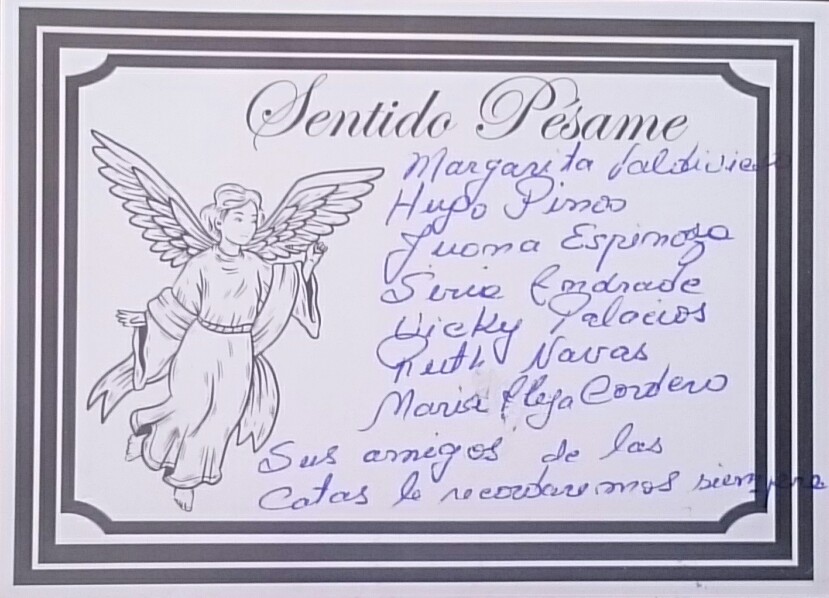 Sentido Pésame
Margarita Valdivieso
Hugo Pinos
Juana Espinoza
Andrade
Vicky Palacios
Ruth Navas
Maria Cordero
Sus amigos de las
Catas le recordaremos siempre